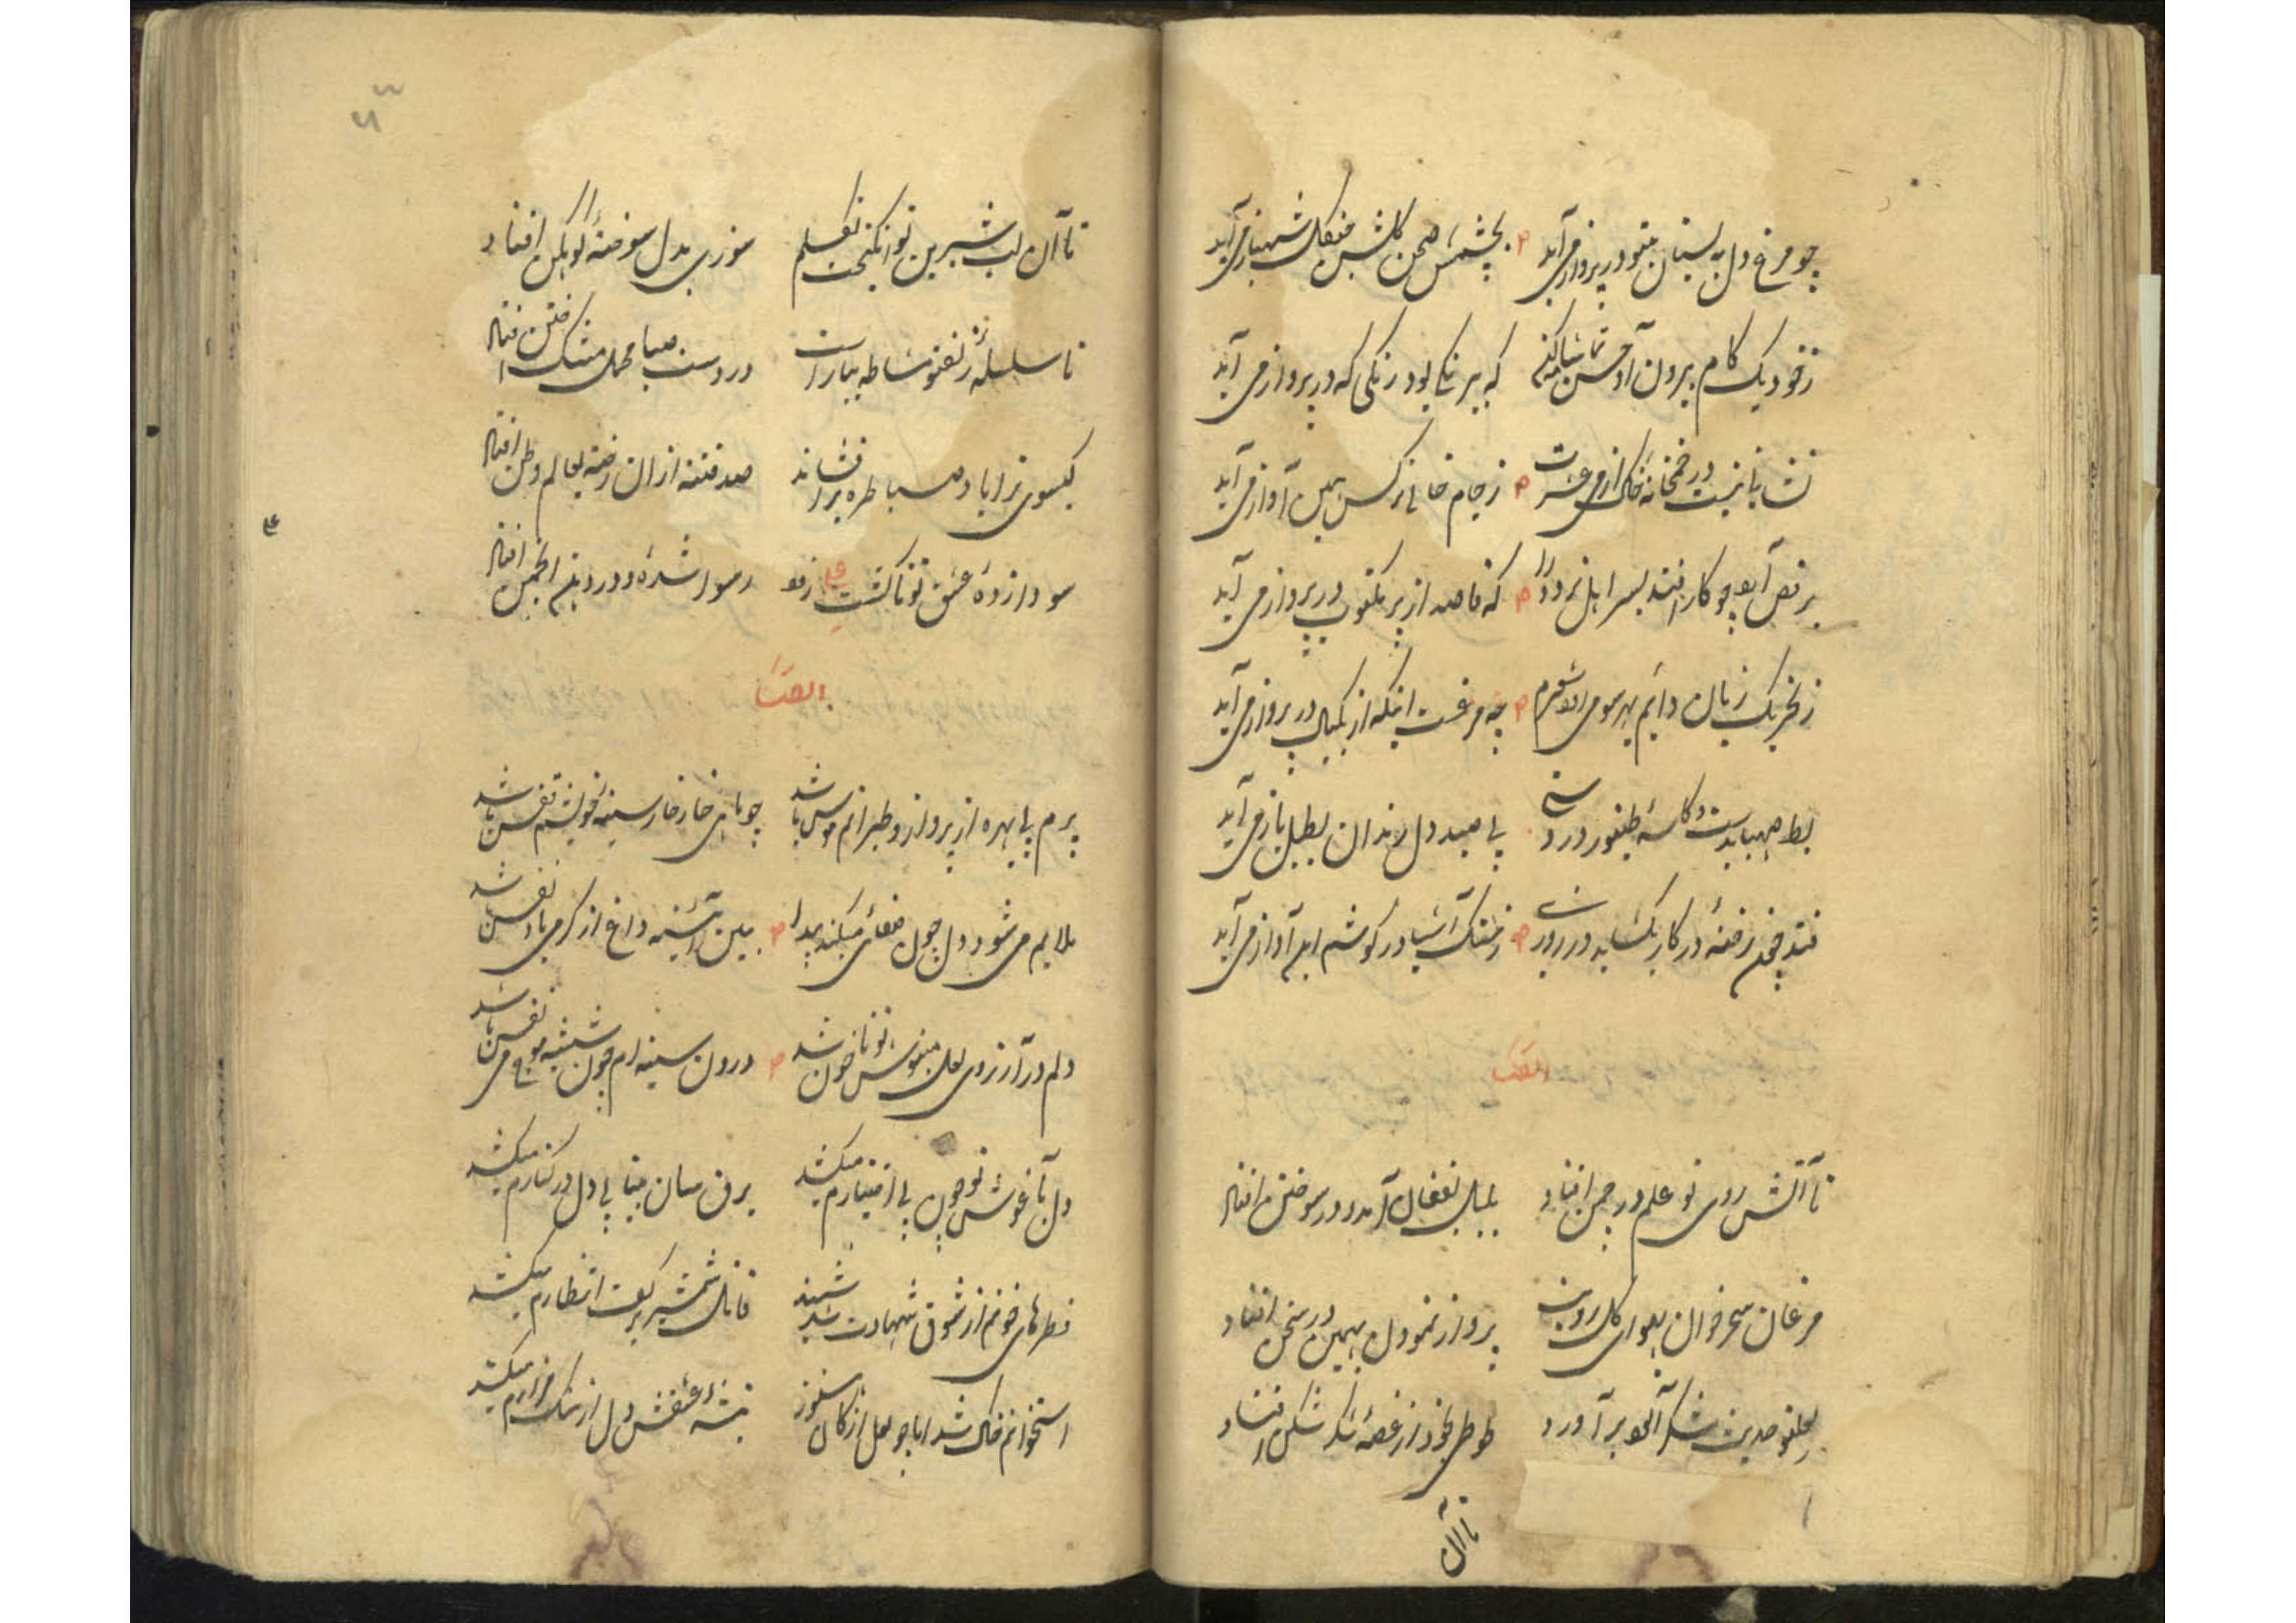 چو مرغ دل به بستان تو در پرواز می آید بچشمش صحن گلشن چنگل شهباز می آید
ز خود یک کام بیرون آ و حسن تماشا کن که بیرنگی بود رنگی که در پرواز می آید
نشانی نیست در خمخانه خاک از می عشرت ز جام خالی نرگس همین آواز می آید
چو کار افتد بسر اهل نرود را که قاصد از پر مکتوب در پرواز می آید
ز تحریک زبان دایم بهر سو می رود چه مرغست اینکه از یکبال در پرواز می آید
بط صهبا بدست و کاسه طنبور در پی صید دل رندان بطبل باز می آید
فتد چون رخنه در کار بگشاید در روزی ز سنگ آسیا در گوشم این آواز می آید
ایضا
تا آتش روی تو علم در چمن افتاد بلبل بفغان آمد و در سوختن افتاد
مرغان سحرخوان بهوای گل رویت پرواز نمودند بهمین در سخن افتاد
حدیث شکر آلود برآورد طوطی بخود از غصه شکر شکن افتاد
تا آن
تا آن لب شیرین تو انگیخت تکلم سوزی بدل سوخته کوهکن افتاد
تا سلسله زلف تو مشاطه بیاراست در دست صبا محمل مشک ختن افتاد
گیسوی ترا باد صبا طره برافشاند صد فتنه ازان رخنه بعالم وطن افتاد
سودازده عشق تو تا گشت رسوا شده و در دهن انجمن افتاد
ایضا
پرم بی بهره از پرواز و طیرانم هوس باشد چو ماهی خارخار سینه خویشم قفس باشد
ملایم می شود دل چون صفائی میکند پیدا ببین آئینه داغ از گرمی باد نفس باشد
دلم در آرزوی لعل مینوش تو تا خون شد درون سینه ام چون شیشه موج می نفس باشد
دل بآغوش تو چون بی اختیارم میکشد برق سان بیتابی دل در کنارم میکشد
قطرهای خونم از شوق شهادت شد سفید قاتل شمشیر بر کف انتظارم میکشد
استخوانم خاک شد اما چو لعل از کان هنوز تیشه عشقش دل از سنگ مزارم میکشد